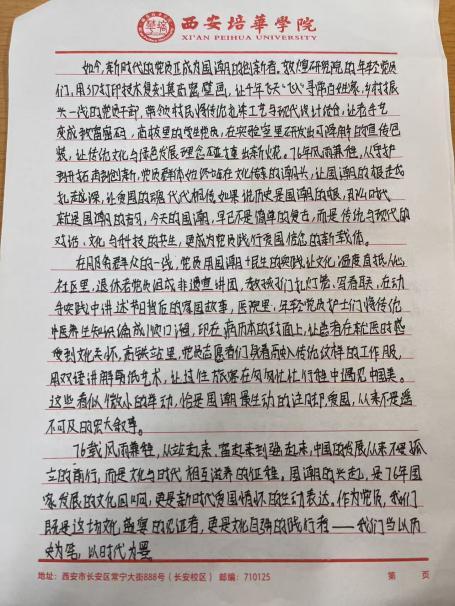 西安培華學院
XI'AN PEIHUA UNIVERSITY
如今,新时代的党员正成为国潮的创新者。敦煌研究院的年轻党员
们,用3D打印技术复刻莫高窟壁画,让千年飞天“飞”入寻常百姓家,乡村振
兴一线的党员干部,带领村民将传统扎染工艺与现代设计结合,让老手艺
变成致富密码,高校里的学生党员,在实验室里研发出可降解的国潮包
装,让传统文化与绿色发展理念碰撞出新火花。76年风雨兼程,从守护
到开拓再到创新,党员群体始终站在文化传承的潮头,让国潮的根越
扎越深,让爱国的魂代代相传如果说历史是国潮的根,那么时代
就是国潮的春风,今天的国潮,早已不是简单的复古,而是传统与现代的
对话,文化与科技的共生,更成为党员践行爱国信念的新载体。
在服务群众的一线,党员用国潮+民生的实践让文化温度直抵人心
社区里,退休老党员组成非遗宣讲团,教孩子们扎灯笼、写春联,在动
手实践中讲述节日背后的家国故事,医院里,年轻党员护士们将传统
中医养生知识编成顺口溜,印在病历本的封面上,让患者在就医时感
受到文化关怀,高铁站里,党员志愿者们穿着融入传统纹样的工作服,
用双语讲解剪纸艺术,让过往旅客在匆匆忙忙行程中遇见中国美。
这些看似微小的举动,恰是国潮最生动的注脚,爱国,从来不是遥
不可及的宏大叙事。
76载风雨兼程,从站起来、富起来到强起来,中国的发展从来不是孤
立的前行,而是文化与时代相互滋养的征程。国潮的兴起,是76年国
家发展的文化回响,更是新时代爱国情怀的生动表达。作为党员,我们
既是这场文化盛宴的见证者,更是文化自强的践行者——我们当以历
史为笔,以时代为墨
地址:西安市长安区常宁大街888号(长安校区) 邮编:710125
第 页